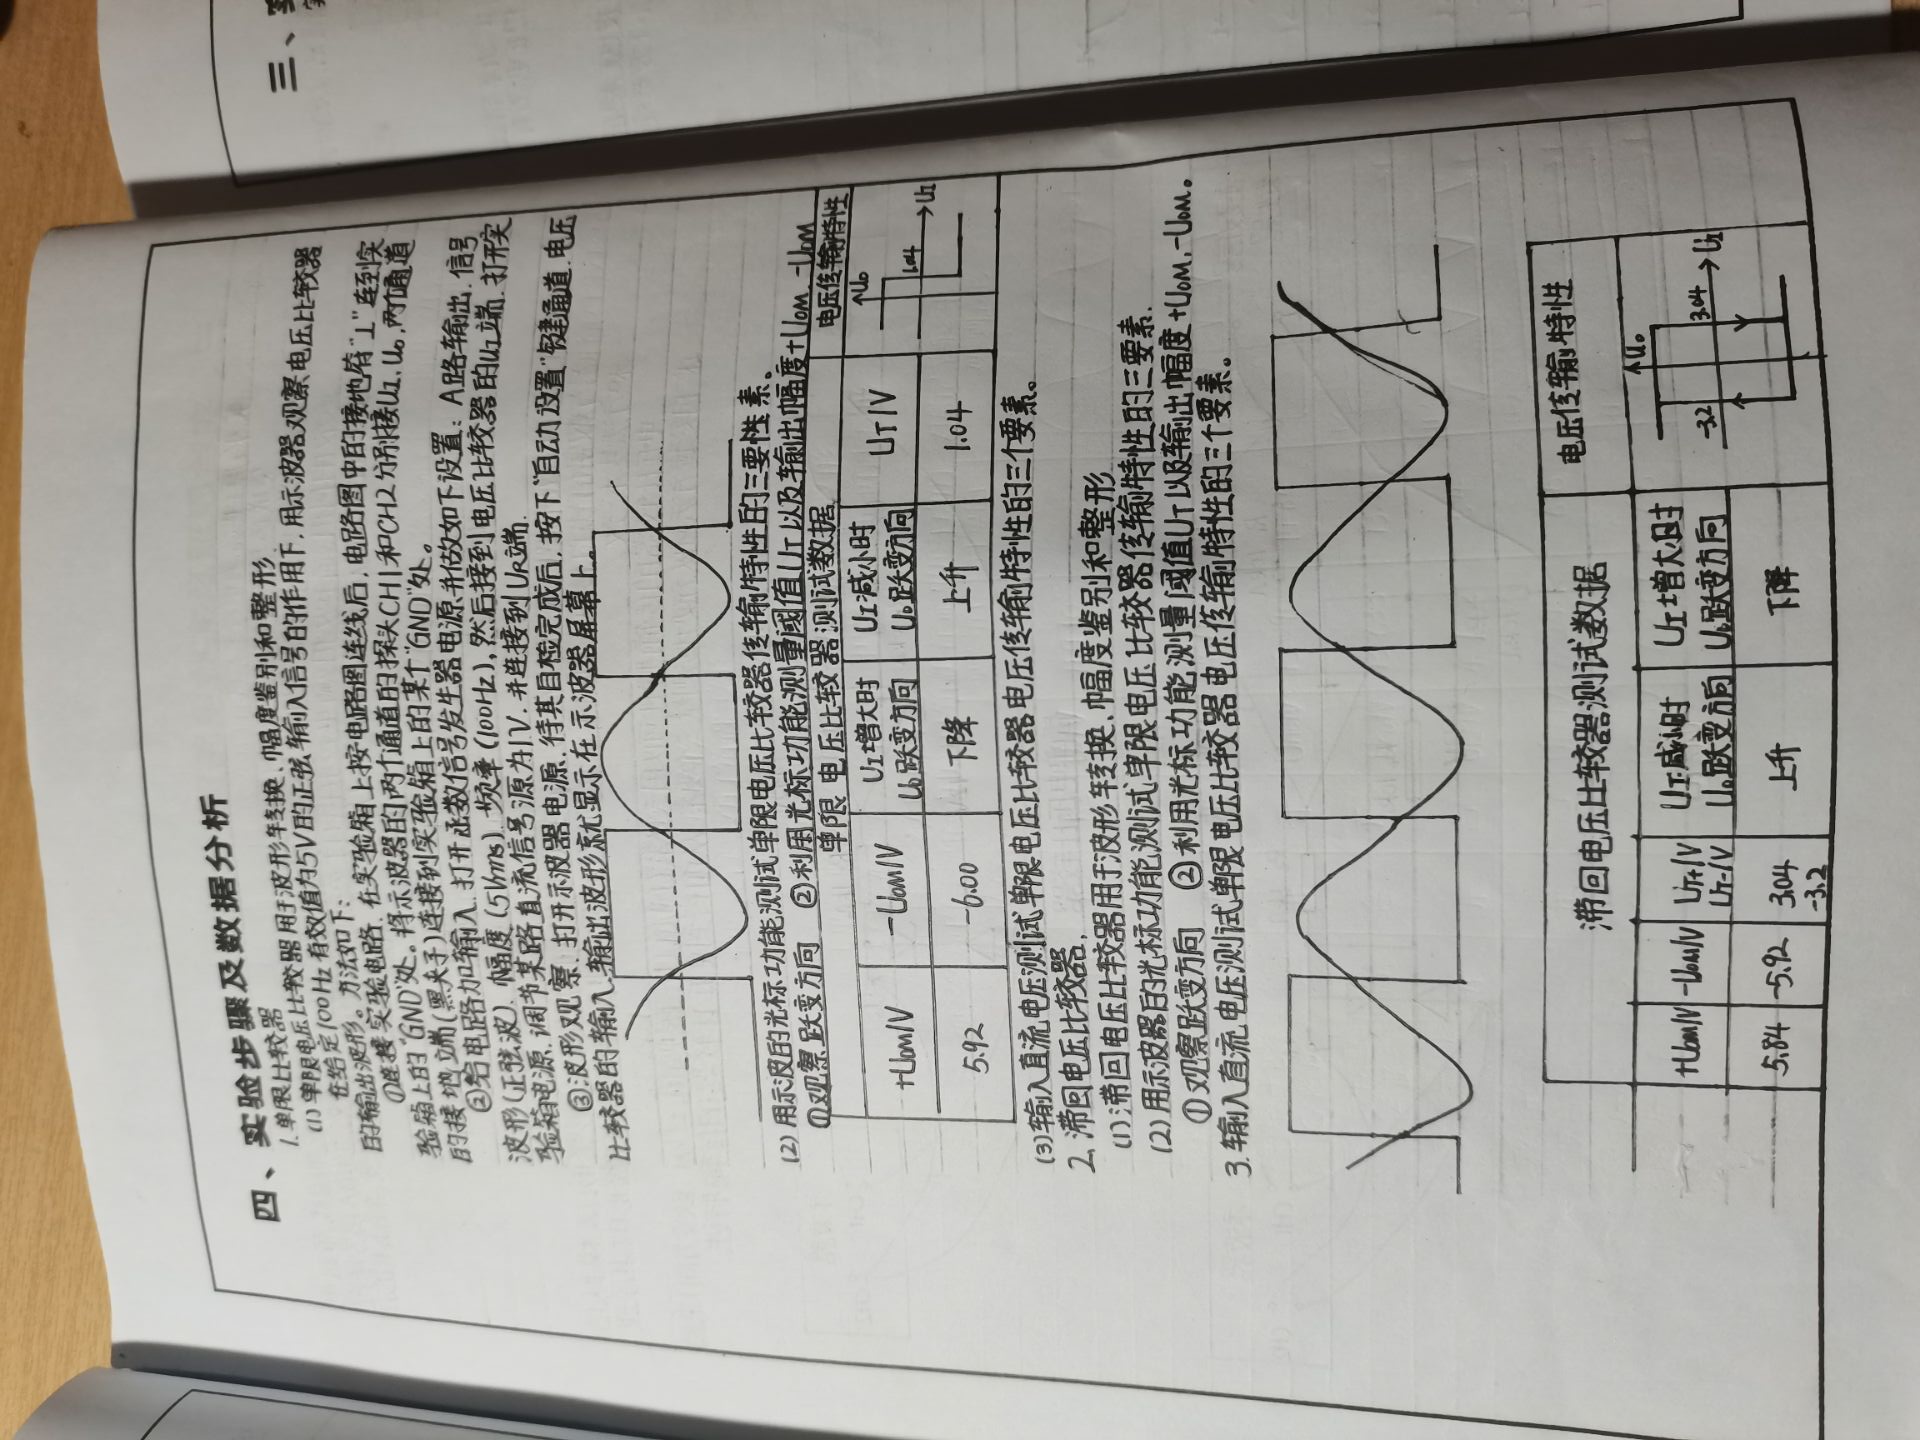 四、实验步骤及数据分析
1.单限比较器
(1)单限电压比较器用于波形转换、幅度鉴别和整形.
在给定100Hz有效值为5V的正弦输入信号的作用下,用示波器观察电压比较器
的输出波形。方法如下:
①连接实验电路.在实验箱上按电路图连线后,电路图中的接地符"⊥"连到实
验箱上的"GND"处。将示波器的两个通道的探头CH1和CH2分别接UI、Uo,两个通道
的接地端(黑夹子)连接到实验箱上的某个"GND"处。
②给电路加输入.打开函数信号发生器电源并做如下设置:A路输出.信号
波形(正弦波).幅度(5Vrms).频率(100Hz),然后接到电压比较器的UI端.打开实
验箱电源.调节某路直流信号源为1V.并连接到UR端.
③波形观察.打开示波器电源.待其自检完成后,按下"自动设置"键建通道.电压
比较器的输入.输出波形就显示在示波器屏幕上。
(2)用示波的光标功能测试单限电压比较器传输特性的三要性素。
①观察跃变方向 ②利用光标功能测量阈值UT以及输出幅度+UOM、-UOM
单限电压比较器测试数据 电压传输特性
+UOM/V -UOM/V UI增大时 UI减小时 UT/V Uo
Uo跃变方向 Uo跃变方向 1.04 UI
5.92 -6.00 下降 上升 1.04
(3)输入直流电压测试单限电压比较器电压传输特性的三个要素。
2.滞回电压比较器.
(1)滞回电压比较器用于波形转换.幅度鉴别和整形
(2)用示波器的光标功能测试单限电压比较器传输特性的三要素.
①观察跃变方向 ②利用光标功能测量阈值UT以及输出幅度+UOM.-UOM。
3.输入直流电压测试单限电压比较器电压传输特性的三个要素。
滞回电压比较器测试数据 电压传输特性
+UOM/V -UOM/V UT+/V UI减小时 UI增大时 Uo
UT-/V Uo跃变方向 Uo跃变方向 -3.2 3.04 UI
5.84 -5.92 3.04 上升 下降
-3.2